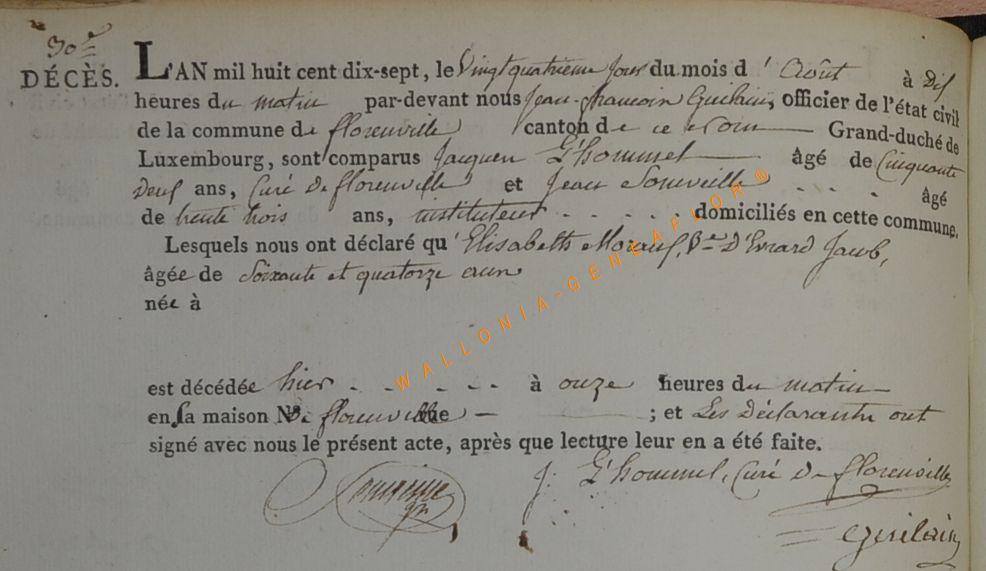 30e
DÉCÈS.
L'AN mil huit cent dix-sept, le Vingt quatrieme jour du mois d' Août à Dix
heures du matin par-devant nous Jean-francois Guilain, officier de l'état civil
de la commune de florenville canton de ce nom Grand-duché de
Luxembourg, sont comparus Jacques L'hommel âgé de Cinquante
Deux ans, Curé De florenville et Jean Somville âgé
de trente trois ans, instituteur domiciliés en cette commune.
Lesquels nous ont déclaré qu' Elisabeth Ve D'Evrard Jacob,
âgée de Soixante et quatorze ans
née à
est décédée hier à onze heures du matin
en sa maison De florenville ; et Les Déclarants ont
signé avec nous le présent acte, après que lecture leur en a été faite.
J. L'hommel, Curé De florenville
Guilain
WALLONIA-GENEAFLOR®